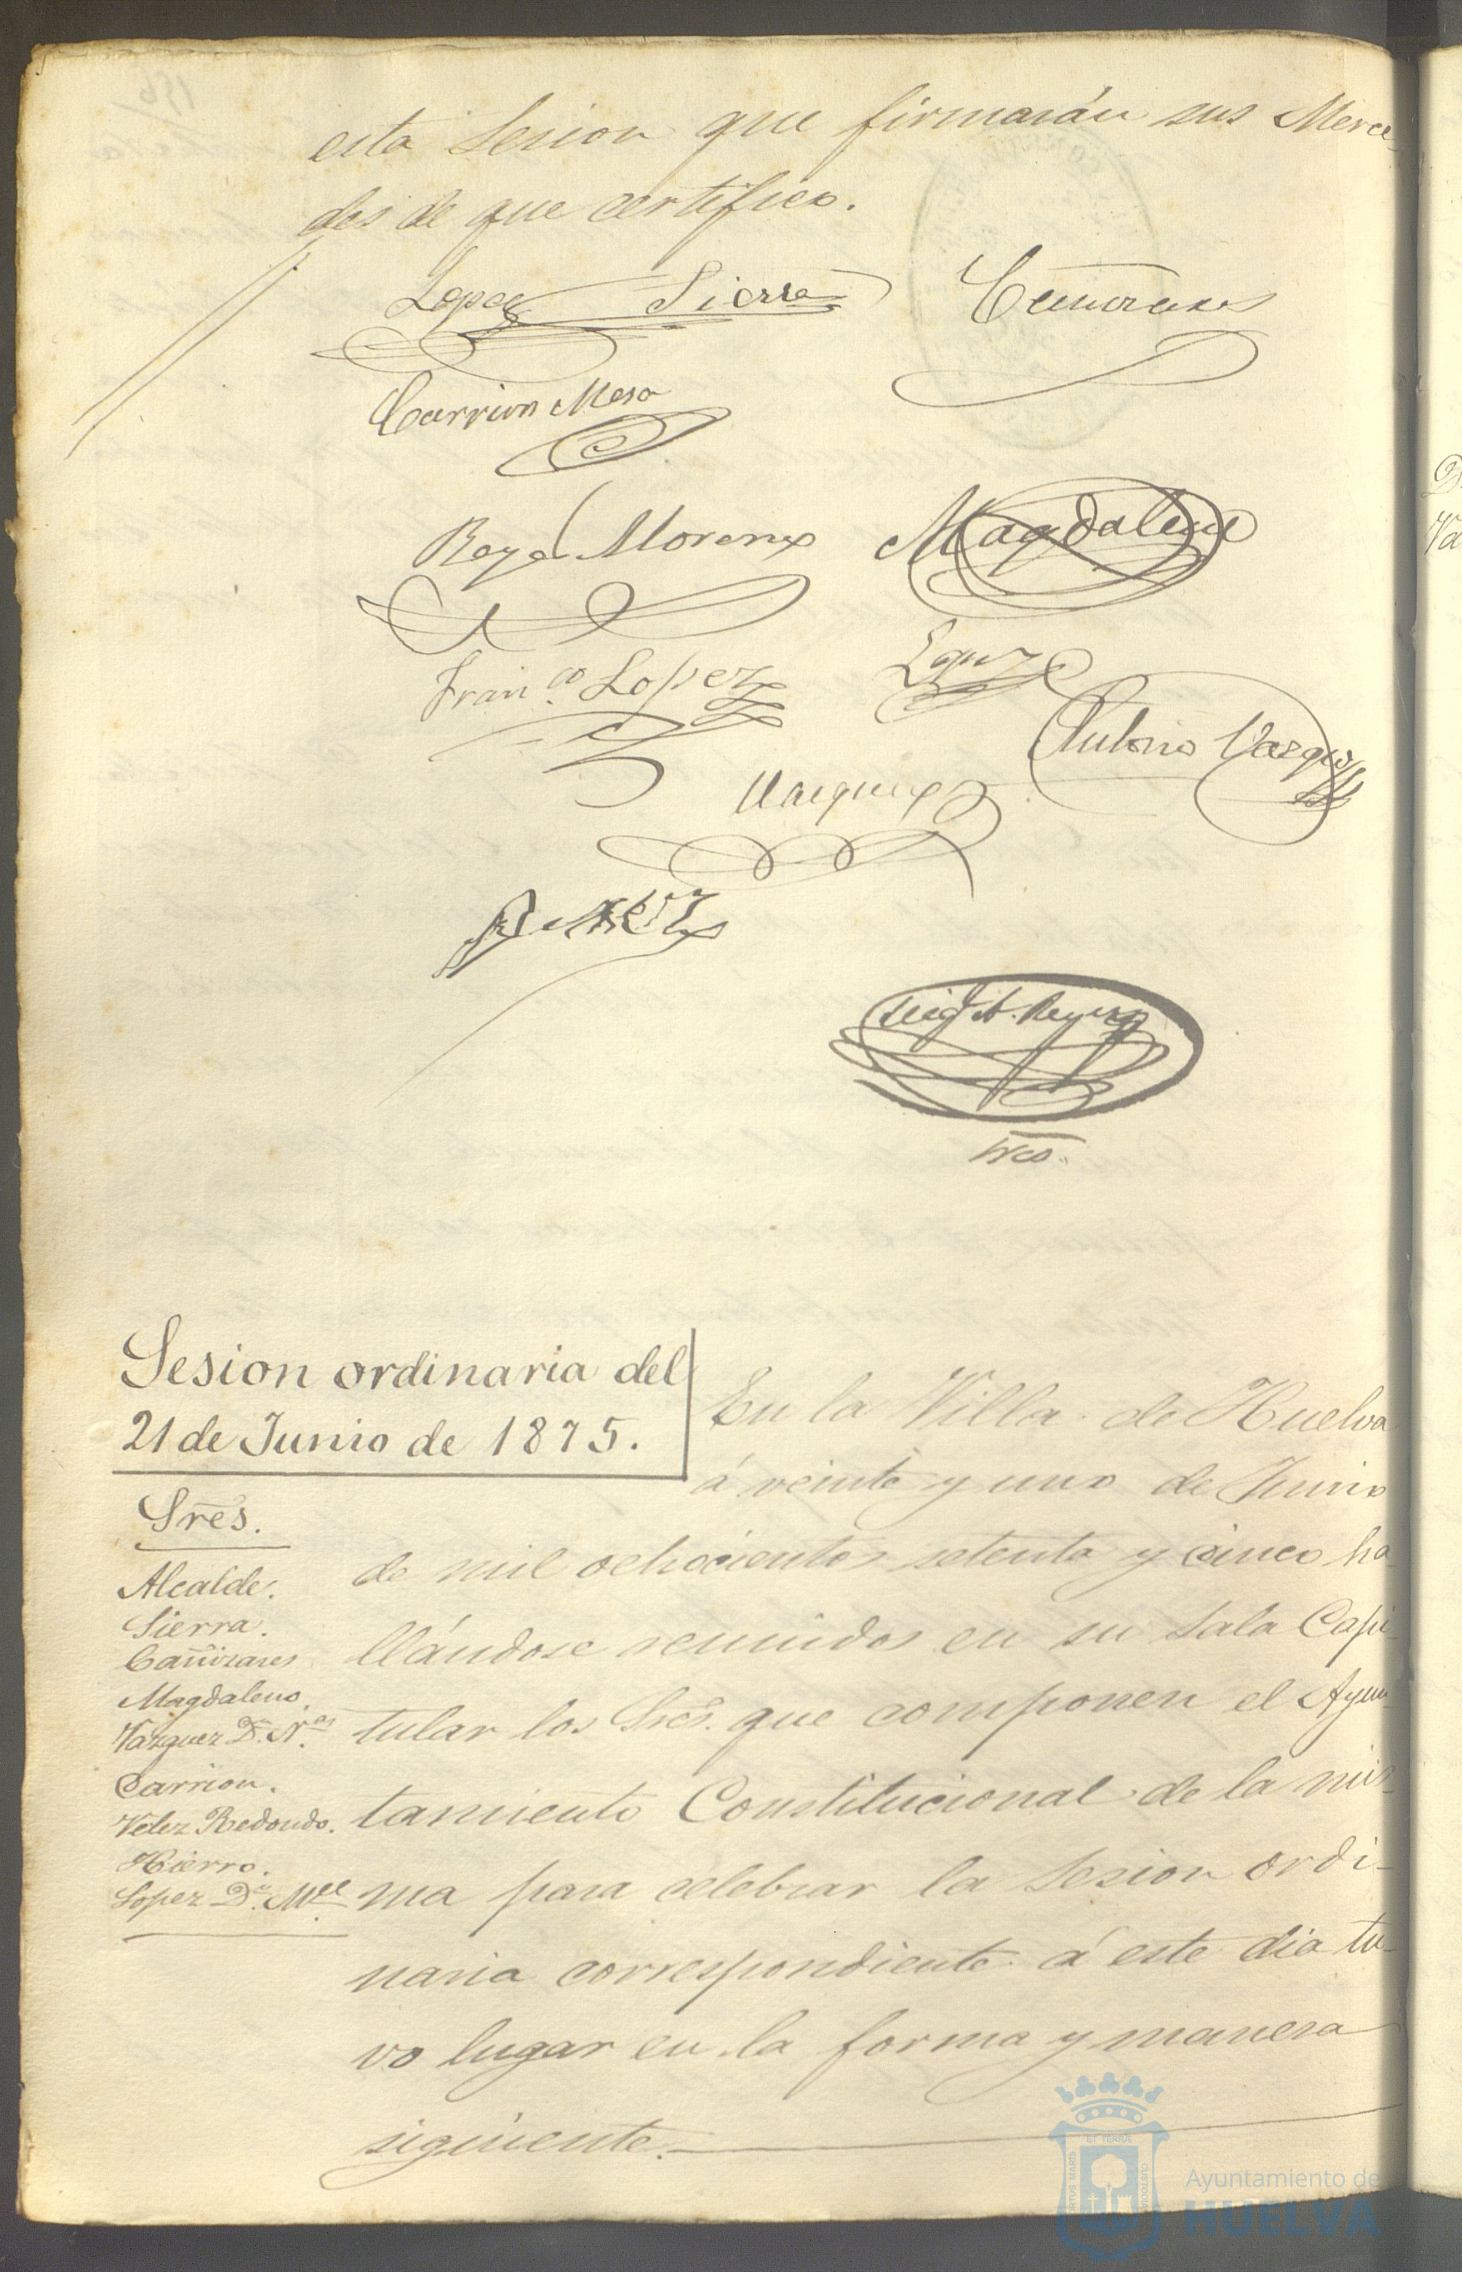 esta Sesion que firmarán sus Merce-
des de que certifico.
Lopez Sierra
Cañizares
Carrion Mesa
Moreno
Magdaleno
Fran.co Lopez
Lopez
Antonio Vazquez
Vazquez
Srio.
Sesion ordinaria del
21 de Junio de 1875.
Sres.
Alcalde.
Sierra.
Cañizares
Magdaleno.
Vazquez D. N.as
Carrion.
Velez Redondo.
Hierro.
Lopez D.n M.el
En la Villa de Huelva
á veinte y uno de Junio
de mil ochocientos setenta y cinco ha-
llándose reunidos en su Sala Capi-
tular los Sres. que componen el Ayun-
tamiento Constitucional de la mis-
ma para celebrar la Sesion ordi-
naria correspondiente á este dia tu-
vo lugar en la forma y manera
siguiente.
Ayuntamiento de
HUELVA